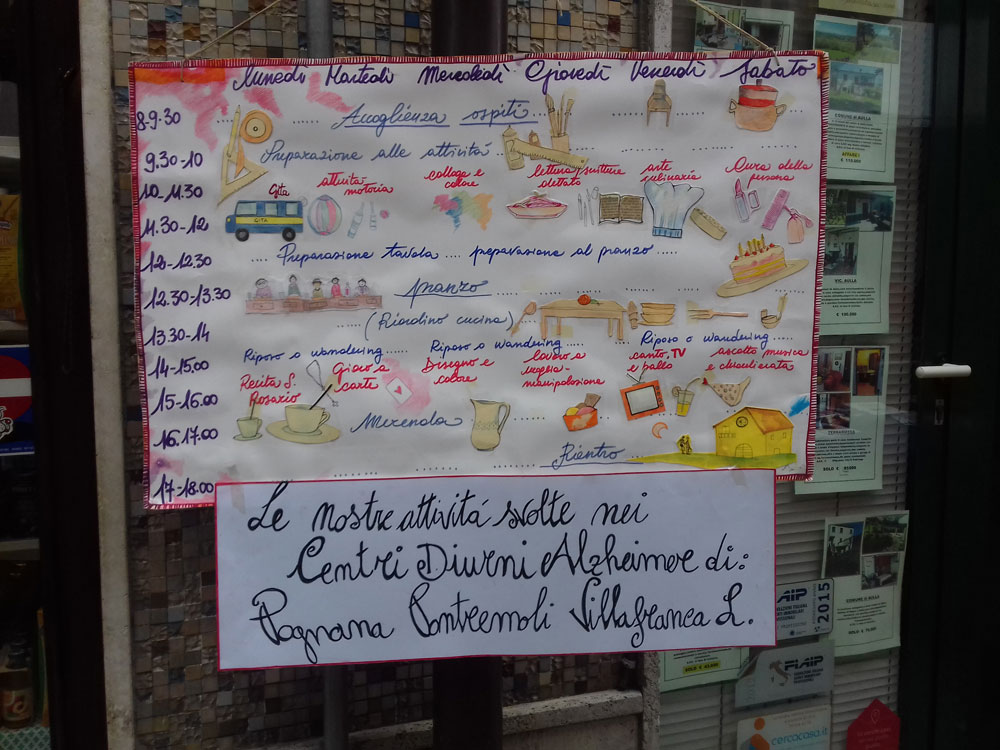 Lunedì Martedì Mercoledì Giovedì Venerdì Sabato
8-9.30 Accoglienza ospiti
9.30-10 Preparazione alle attività
10-11.30 Gita attività motoria collage e colore lettura/scritture dettato arte culinaria Cura della persona
GITA
11.30-12
12-12.30 Preparazione tavola .... preparazione al pranzo
12.30-13.30 pranzo
13.30-14 (Riordino cucina)
Riposo o wandering ..... Riposo o wandering ..... Riposo o wandering
14-15.00
Recita S. Rosario Gioco a carte Disegno e colore lavoro a maglia- manipolazione canto, TV e ballo ascolto musica e chiacchierata
15-16.00
16.17.00 Merenda
17-18.00 Rientro
Le nostre attività svolte nei
Centri Diurni Alzheimer di:
Pognana Pontremoli Villafranca L.
COMUNE DI MULLA
AIP
2015
FIAIP
cercacasa.it